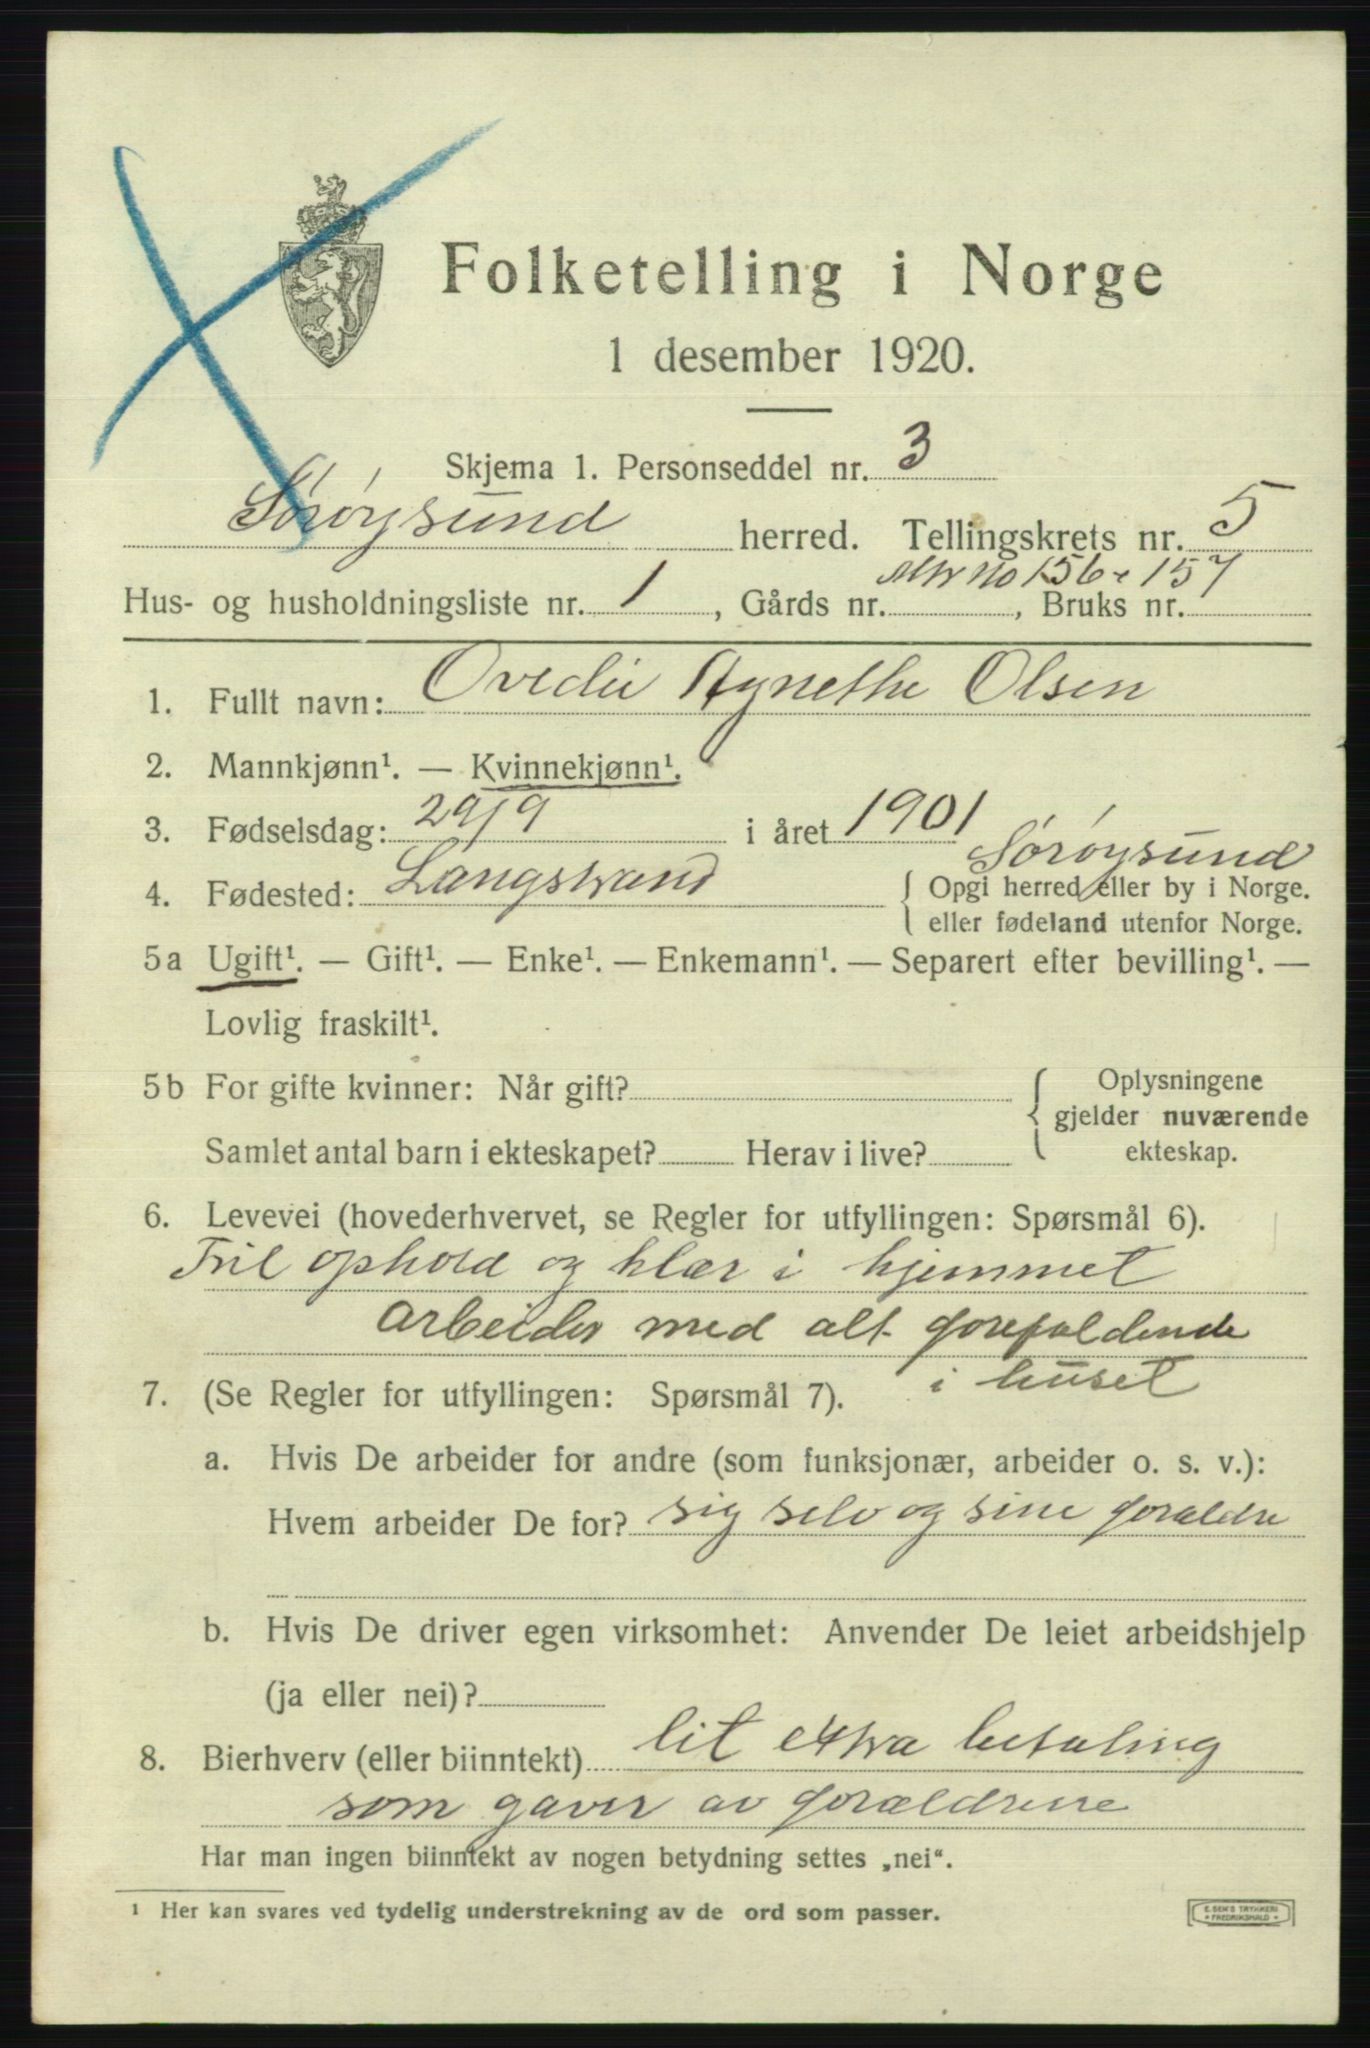 Folketelling i Norge
1 desember 1920.
Skjema 1. Personseddel nr. 3
Sørøysund herred. Tellingskrets nr. 5
Hus- og husholdningsliste nr. 1, Gårds nr. Mtr no 156 & 157, Bruks nr.
1. Fullt navn: Ovedie Agnethe Olsen
2. Mannkjønn¹. — Kvinnekjønn¹.
3. Fødselsdag: 29/9 i året 1901
4. Fødested: Langstrand Sørøysund
Opgi herred eller by i Norge.
eller fødeland utenfor Norge.
5a Ugift¹. — Gift¹. — Enke¹. — Enkemann¹. — Separert efter bevilling¹. —
Lovlig fraskilt¹.
5b For gifte kvinner: Når gift?
Samlet antal barn i ekteskapet? Herav i live?
Oplysningene
gjelder nuværende
ekteskap.
6. Levevei (hovederhvervet, se Regler for utfyllingen: Spørsmål 6).
Frit ophold og klær i hjemmet
arbeider med alt forefaldende
i huset
7. (Se Regler for utfyllingen: Spørsmål 7).
a. Hvis De arbeider for andre (som funksjonær, arbeider o. s. v.):
Hvem arbeider De for? sig selv og sine forældre
b. Hvis De driver egen virksomhet: Anvender De leiet arbeidshjelp
(ja eller nei)?
8. Bierhverv (eller biinntekt) lit extra betaling
som gaver av forældrene
Har man ingen biinntekt av nogen betydning settes „nei“.
¹ Her kan svares ved tydelig understrekning av de ord som passer.
E. SEM'S TRYKKERI
FREDRIKSHALD